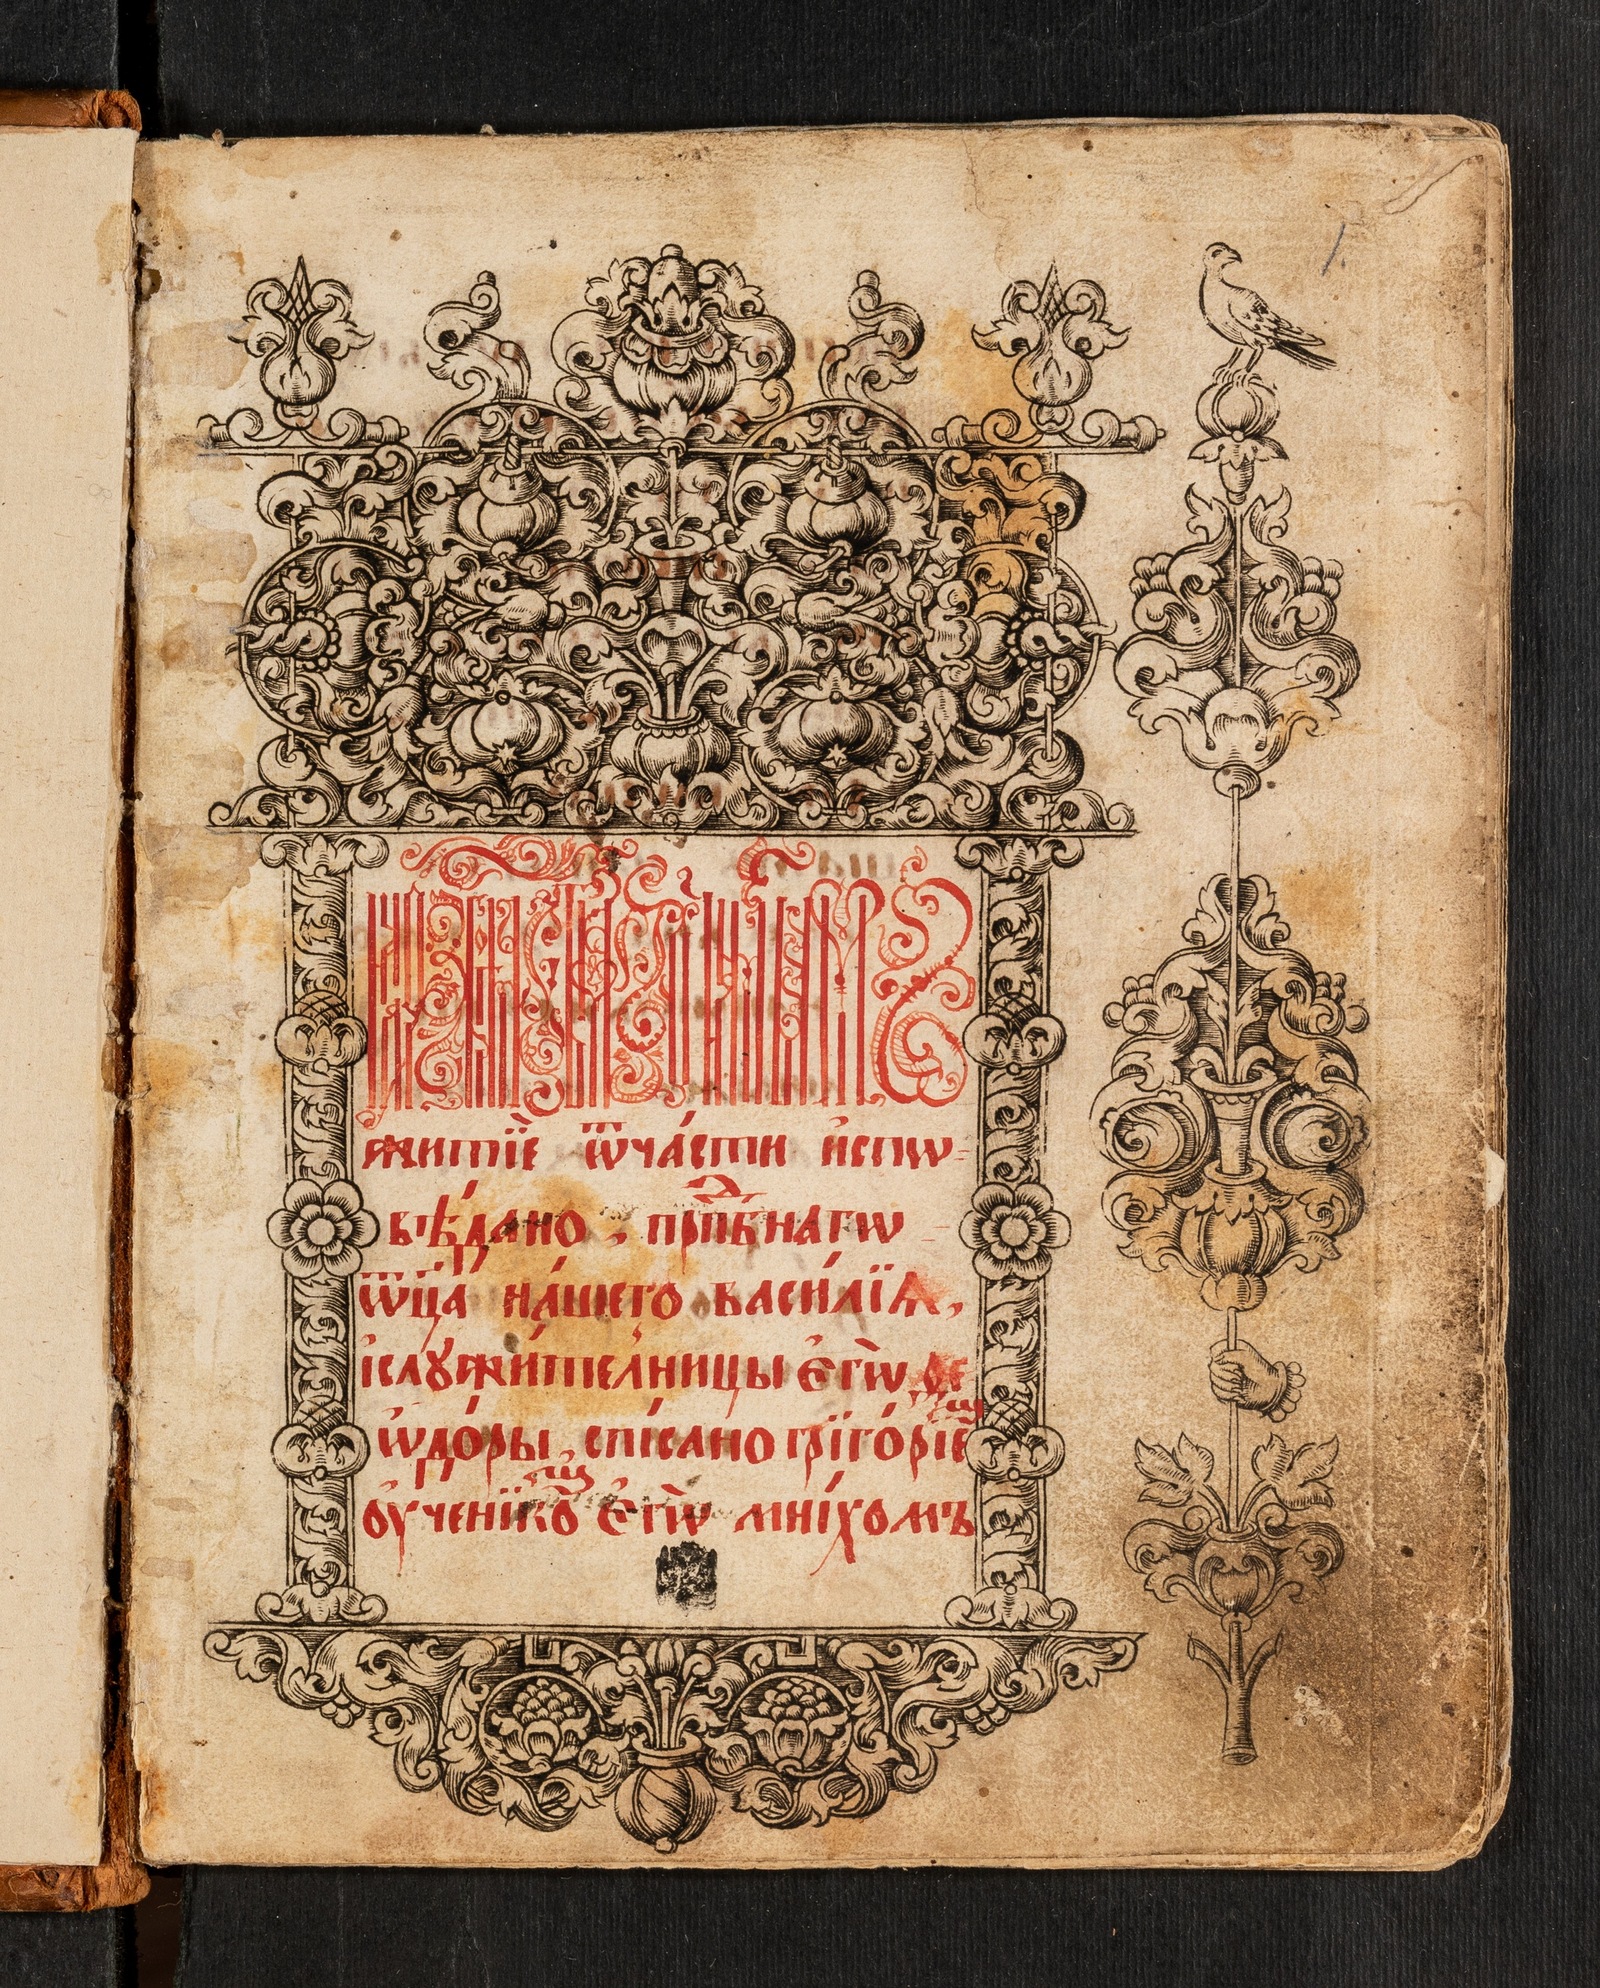 житїе ѿча́сти и҆спѡ-
вѣ́дано, прпⷣбнагѡ
ѿца̀ на́шегѡ васи́лїѧ,
і҆слꙋжи́телницы є҆гѡ̀ ѳе
ѡ҆до́ры, спи́сано григо́рїеⷨ
ᲂу҆ченико́ⷨ є҆гѡ̀ мні́хомъ